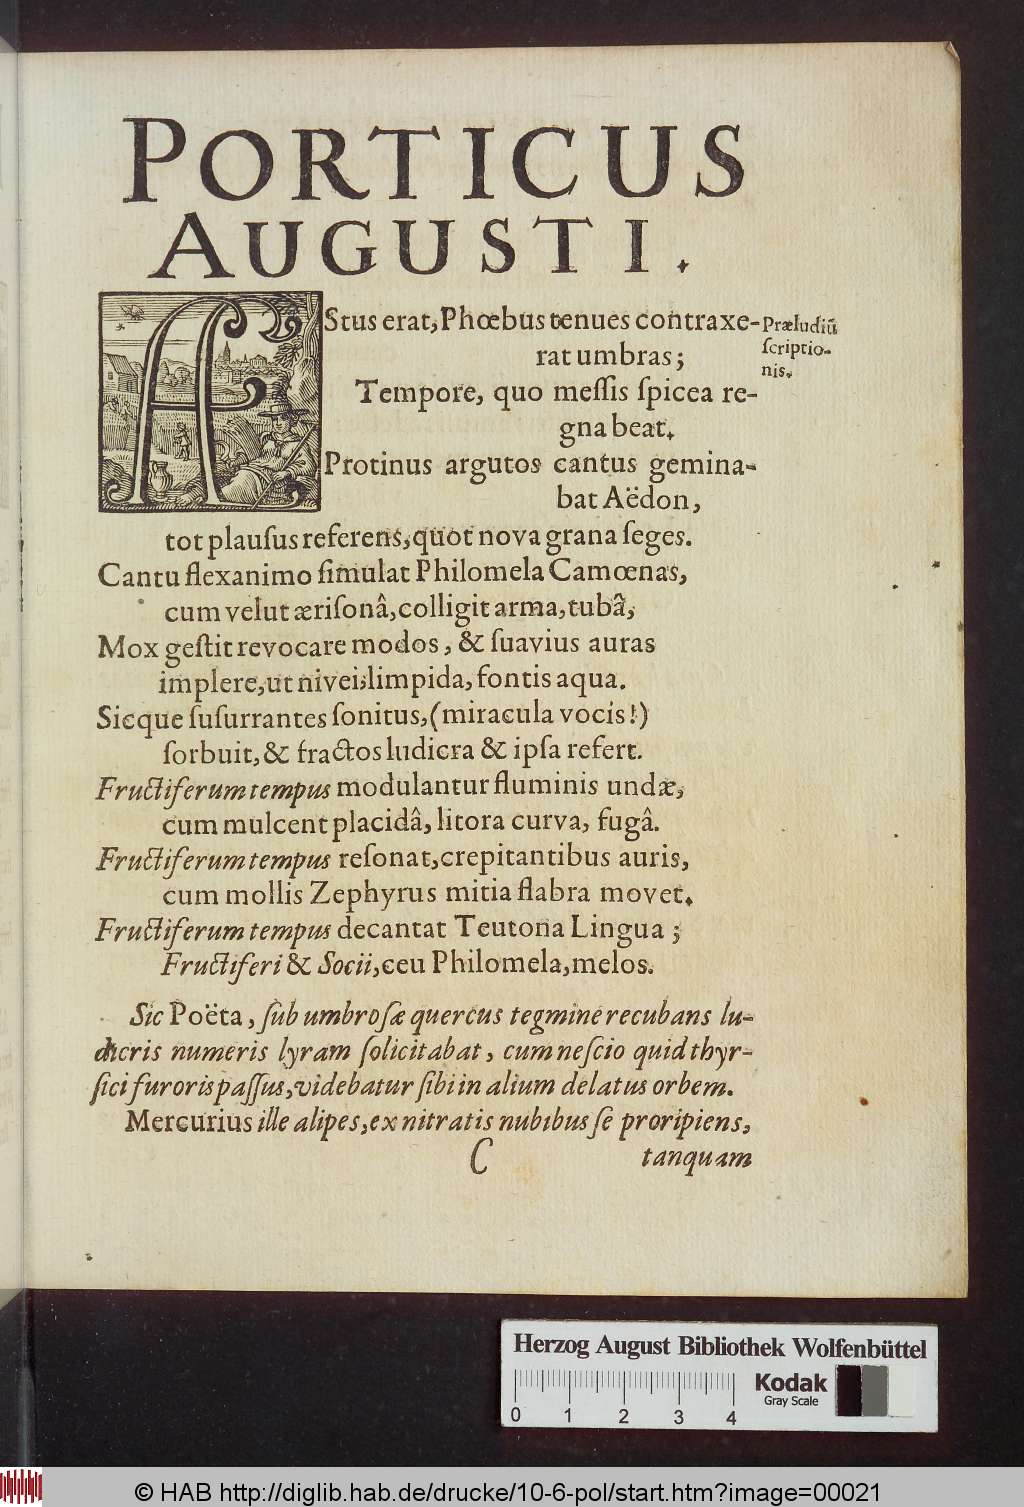 PORTICUS
AUGUSTI.
ÆStus erat, Phœbus tenues contraxe-
rat umbras;
Præludiū
ſcriptio-
nis.
Tempore, quo meſſis ſpicea re-
gna beat.
Protinus argutos cantus gemina-
bat Aëdon,
tot plauſus referens, quot nova grana ſeges.
Cantu flexanimo ſimulat Philomela Camœnas,
cum velut æriſonâ, colligit arma, tubâ,
Mox geſtit revocare modos, & ſuavius auras
implere, ut nivei, limpida, fontis aqua.
Sicque ſuſurrantes ſonitus, (miracula vocis!)
ſorbuit, & fractos ludicra & ipſa refert.
Fructiferum tempus modulantur fluminis undæ,
cum mulcent placidâ, litora curva, fugâ.
Fructiferum tempus reſonat, crepitantibus auris,
cum mollis Zephyrus mitia flabra movet.
Fructiferum tempus decantat Teutona Lingua;
Fructiferi & Socii, ceu Philomela, melos.
Sic Poëta, ſub umbroſæ quercus tegmine recubans lu-
dicris numeris lyram ſolicitabat, cum neſcio quid thyr-
ſici furoris paſſus, videbatur ſibi in alium delatus orbem.
Mercurius ille alipes, ex nitratis nubibus ſe proripiens,
C
tanquam
Herzog August Bibliothek Wolfenbüttel
0 1 2 3 4
Kodak
Gray Scale
© HAB http://diglib.hab.de/drucke/10-6-pol/start.htm?image=00021